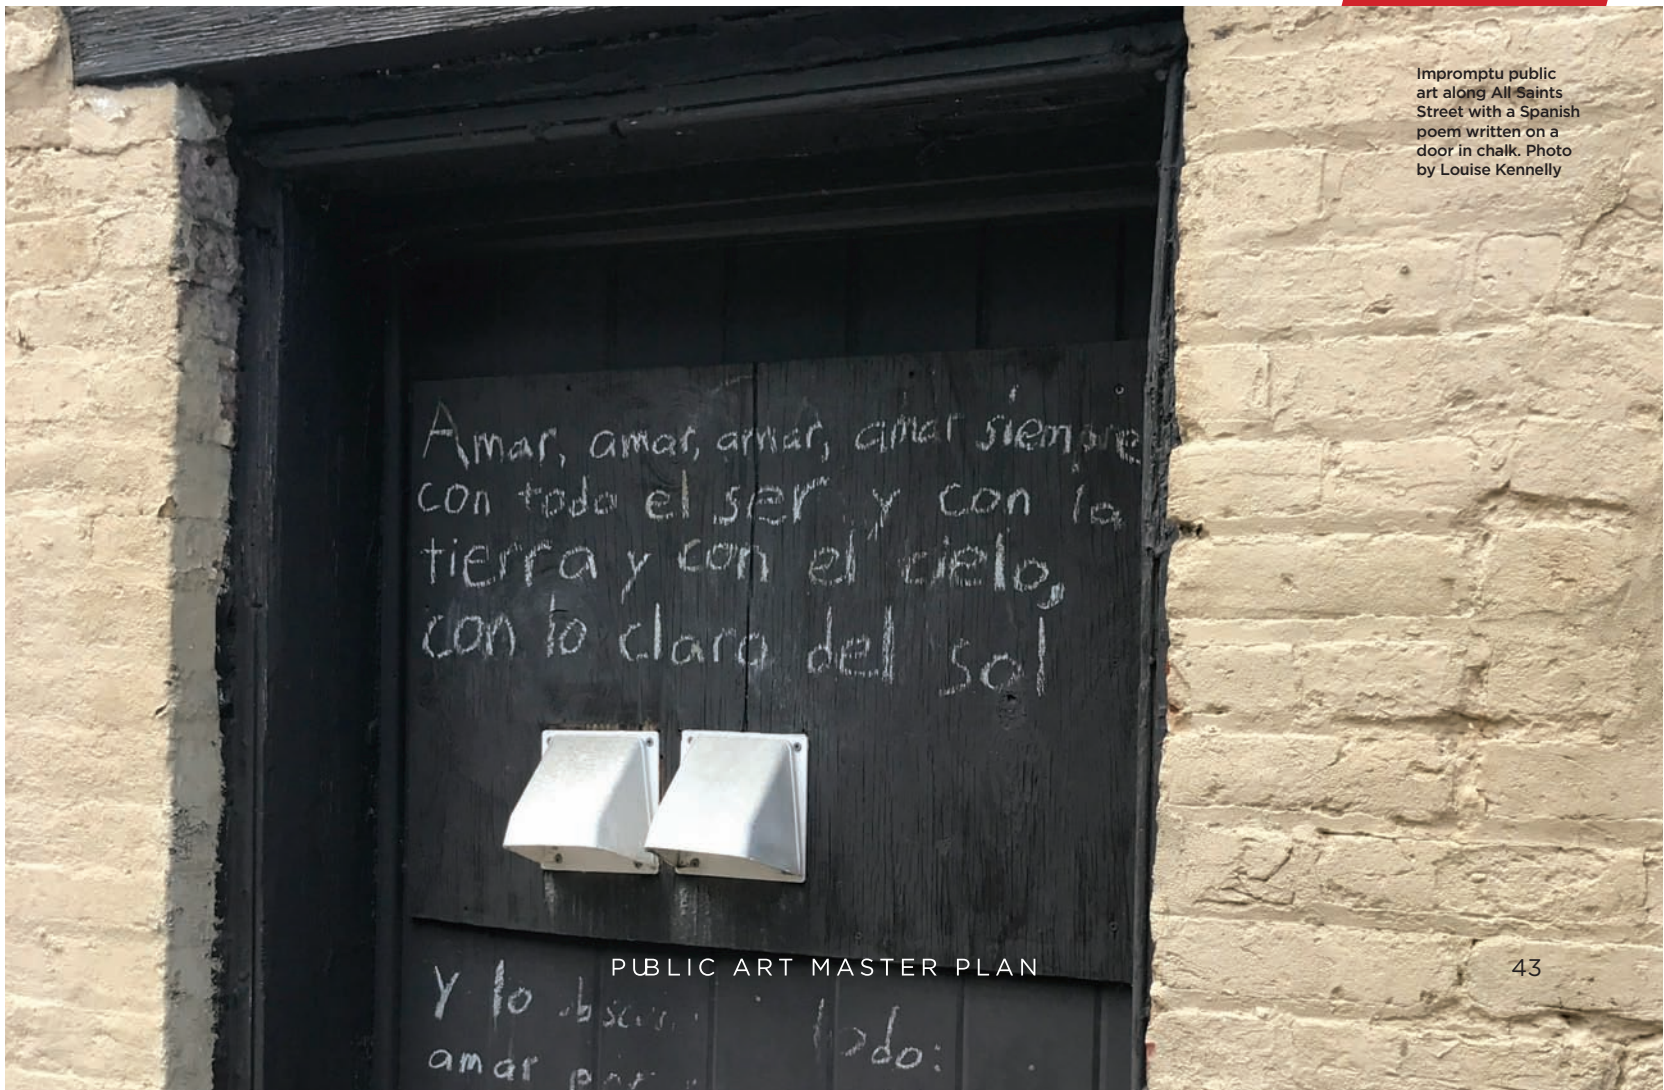 Impromptu public
art along All Saints
Street with a Spanish
poem written on a
door in chalk. Photo
by Louise Kennelly
Amar, amar, amar, amar siempre
con todo el ser y con la
tierra y con el cielo,
con lo claro del sol
Y lo todo:
amar
PUBLIC ART MASTER PLAN
43